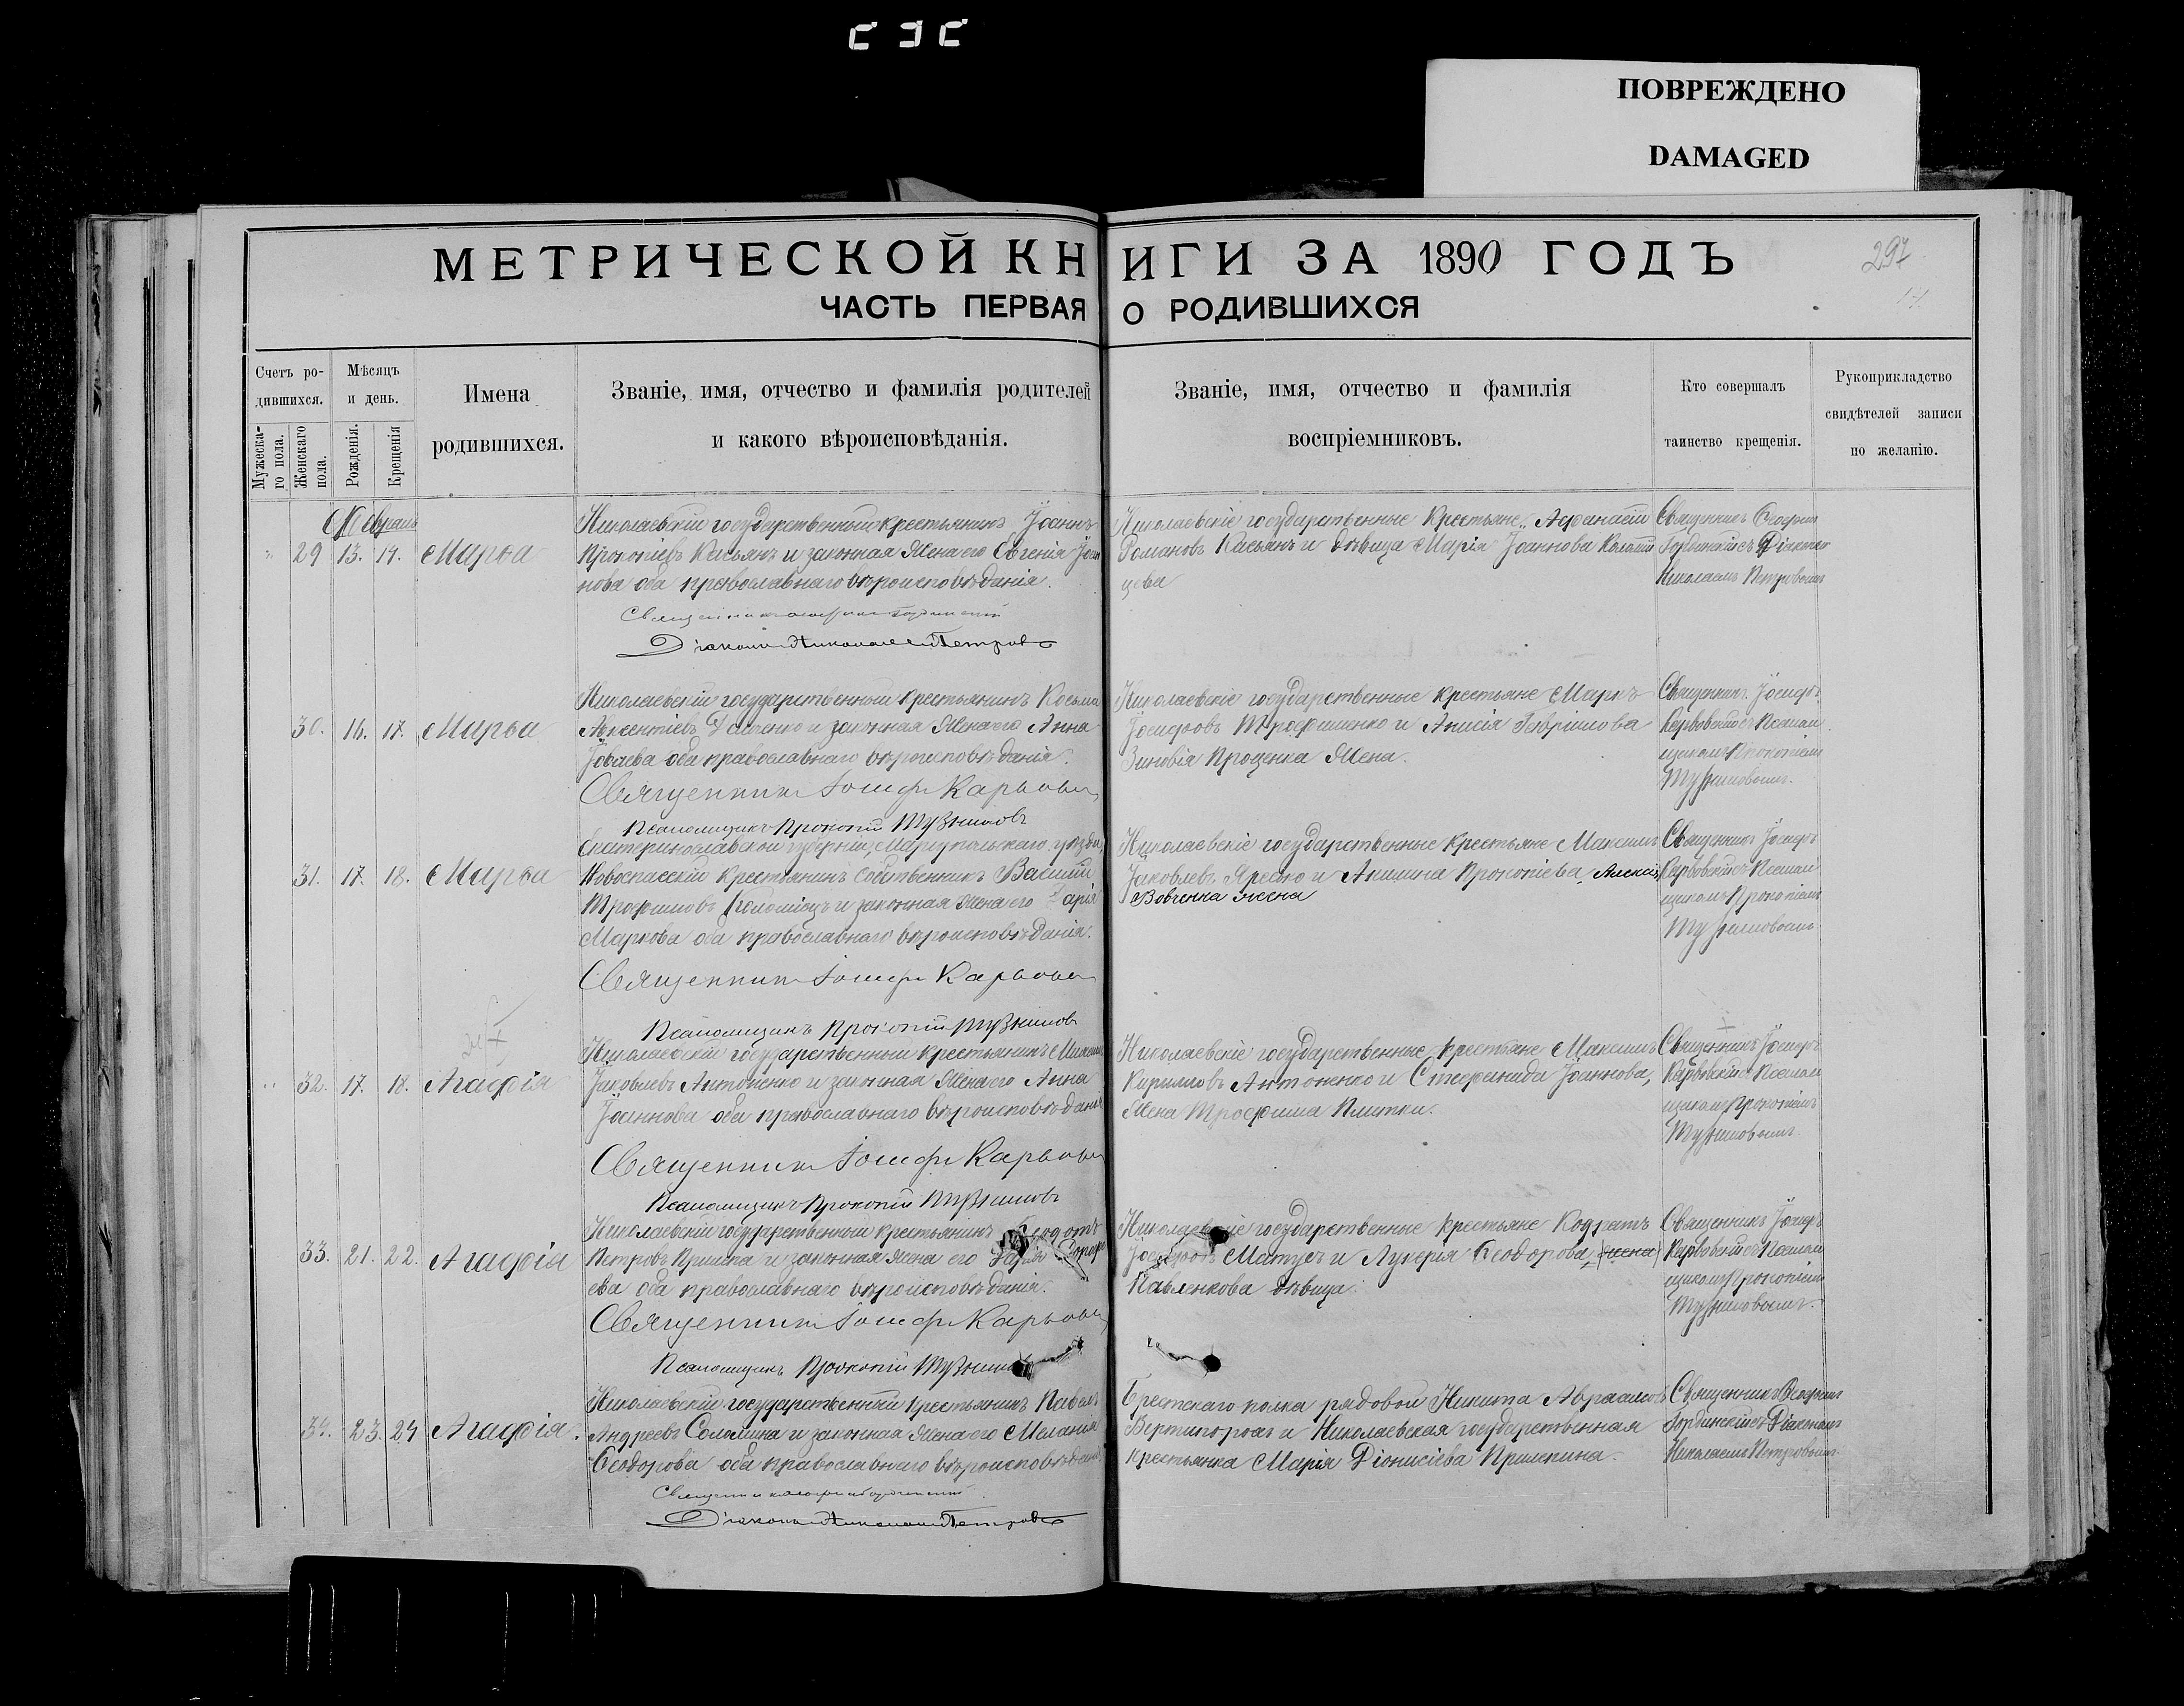 ПОВРЕЖДЕНО
DAMAGED
МЕТРИЧЕСКОЙ КНИГИ ЗА 1890 ГОДЪ
297
ЧАСТЬ ПЕРВАЯ О РОДИВШИХСЯ
Счетъ ро-
дившихся.
Мужеска-
го пола.
Женскаго
пола.
Мѣсяцъ
и день.
Рожденія.
Крещенія
Имена
родившихся.
Званіе, имя, отчество и фамилія родителей
и какого вѣроисповѣданія.
Званіе, имя, отчество и фамилія
воспріемниковъ.
Кто совершалъ
таинство крещенія.
Рукоприкладство
свидѣтелей записи
по желанію.
Февраль
29 13. 14. Марѳа
Николаевскій государственный крестьянинъ Іоаннъ
Прокопіевъ Касьянъ и законная жена его Евгенія Іоан
нова оба православнаго вѣроисповѣданія.
Діаконъ Николай Петровъ
Николаевскіе государственные крестьяне: Афанасій
Романовъ Касьянъ и дѣвица Марія Іоаннова Коломій
цева
Священникъ
Діаконъ
Николаемъ Петровымъ
30. 16. 17. Марѳа
Николаевскій государственный крестьянинъ Косьма
Авксентіевъ и законная жена его Анна
оба православнаго вѣроисповѣданія.
Священникъ Іосифъ
Псаломщикъ Прокопій
Николаевскіе государственные крестьяне Маркъ
Іосифовъ Трофименко и Анисія Гавріилова
Зиновія Проценка жена.
Священникъ Іосифъ
Псалом
щикомъ Прокопіемъ
31. 17. 18. Марѳа
Екатеринославской губерніи, Маріупольскаго уѣзда,
Новоспасскій крестьянинъ собственникъ Василій
Трофимовъ Коломіецъ и законная жена его Дарія
Маркова оба православнаго вѣроисповѣданія.
Священникъ Іосифъ
Псаломщикъ Прокопій
Николаевскіе государственные крестьяне Максимъ
Іаковлевъ Яресько и Акилина Прокопіева, Алексія
Вовченка жена
Священникъ Іосифъ
Псалом
щикомъ Прокопіемъ
32. 17. 18. Агафія
Николаевскій государственный крестьянинъ
Іаковлевъ Антоненко и законная жена его Анна
Іоаннова оба православнаго вѣроисповѣданія
Священникъ Іосифъ
Псаломщикъ Прокопій
Николаевскіе государственные крестьяне Максимъ
Кирилловъ Антоненко и Стефанида Іоаннова,
жена Трофима Плитки.
Священникъ Іосифъ
Псалом
щикомъ Прокопіемъ
33. 21. 22. Агафія
Николаевскій государственный крестьянинъ Ѳеодотъ
Петровъ и законная жена его
ева оба православнаго вѣроисповѣданія.
Священникъ Іосифъ
Псаломщикъ Прокопій
Николаевскіе государственные крестьяне Кодратъ
Іосифовъ Матусъ и Лукерія Ѳеодорова (жена)
Павленкова дѣвица.
Священникъ Іосифъ
Псалом
щикомъ Прокопіемъ
34. 23. 24 Агафія.
Николаевскій государственный крестьянинъ Павелъ
Андреевъ Соломина и законная жена его Меланія
Ѳеодорова оба православнаго вѣроисповѣданія
Діаконъ Николай Петровъ
Брестскаго полка рядовой Никита Авраамовъ
Вертипорохъ и Николаевская государственная
крестьянка Марія Діонисіева Прилепина.
Священникъ
Діаконъ
Николаемъ Петровымъ